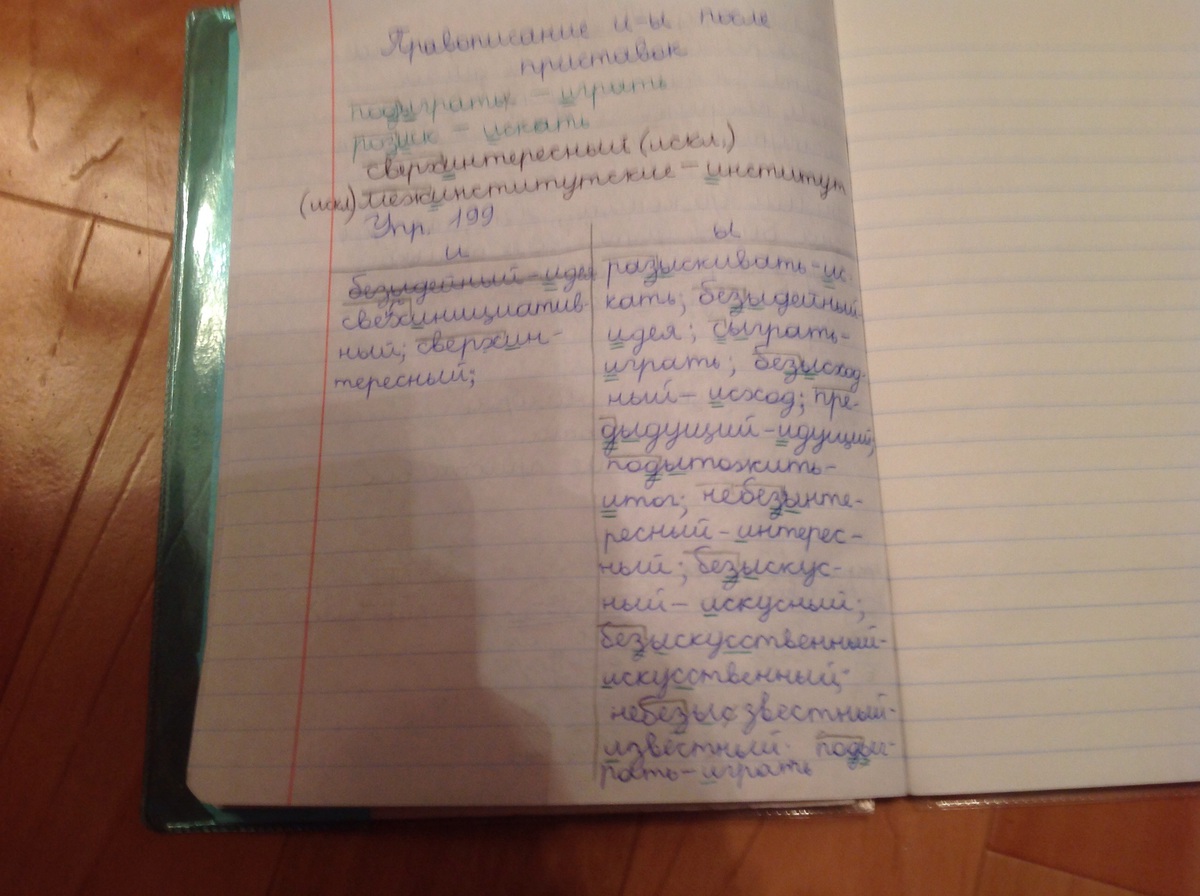 Правописание и-ы после
приставок
подыграть - играть
розыск - искать
сверхинтересный (искл.)
(искл) межинститутские - институт
Упр. 199
и
безыдейный - идея
сверхинициатив-
ный; сверхин-
тересный;
ы
разыскивать - ис-
кать; безыдейный -
идея; сыграть -
играть; безысход-
ный - исход; пре-
дыдущий - идущий;
подытожить -
итог; небезынте-
ресный - интерес-
ный; безыскус-
ный - искусный;
безыскусственный -
искусственный;
небезызвестный -
известный. подыг-
рать - играть